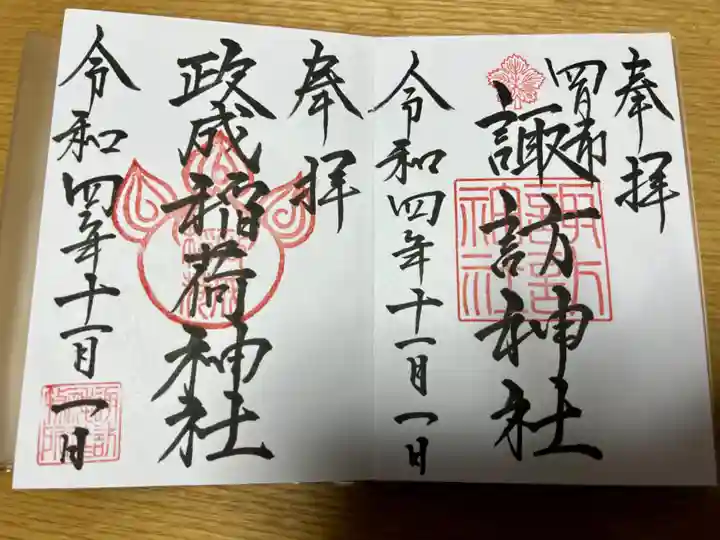 奉拝
四日市
諏訪神社
諏訪神社
令和四年十一月一日
奉拝
政成稲荷神社
令和四年十一月一日